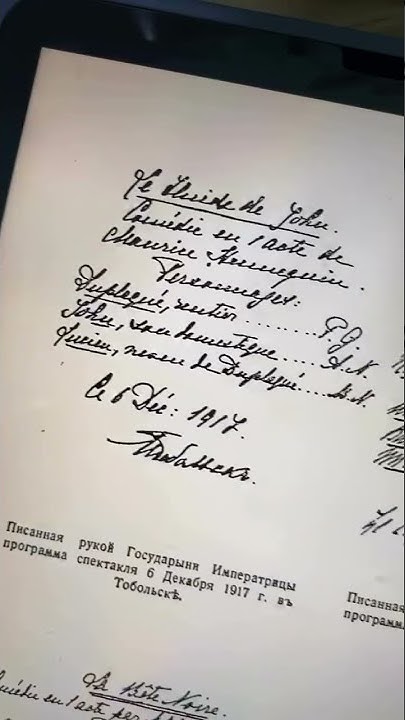 Le Fluide de John.
Comédie en 1 acte de
Maurice Hennequin.
Personnages:
Duplaqué, rentier ......... P. G.
John, son domestique.... A. N.
Lucien, neveu de Duplaqué... A. N.
Ce 6 Déc: 1917.
Тобольскъ.
Писанная рукой Государыни Императрицы
программа спектакля 6 Декабря 1917 г. въ
Тобольскѣ.
Писанная
програм
La Bête Noire.
Comédie en 1 acte par